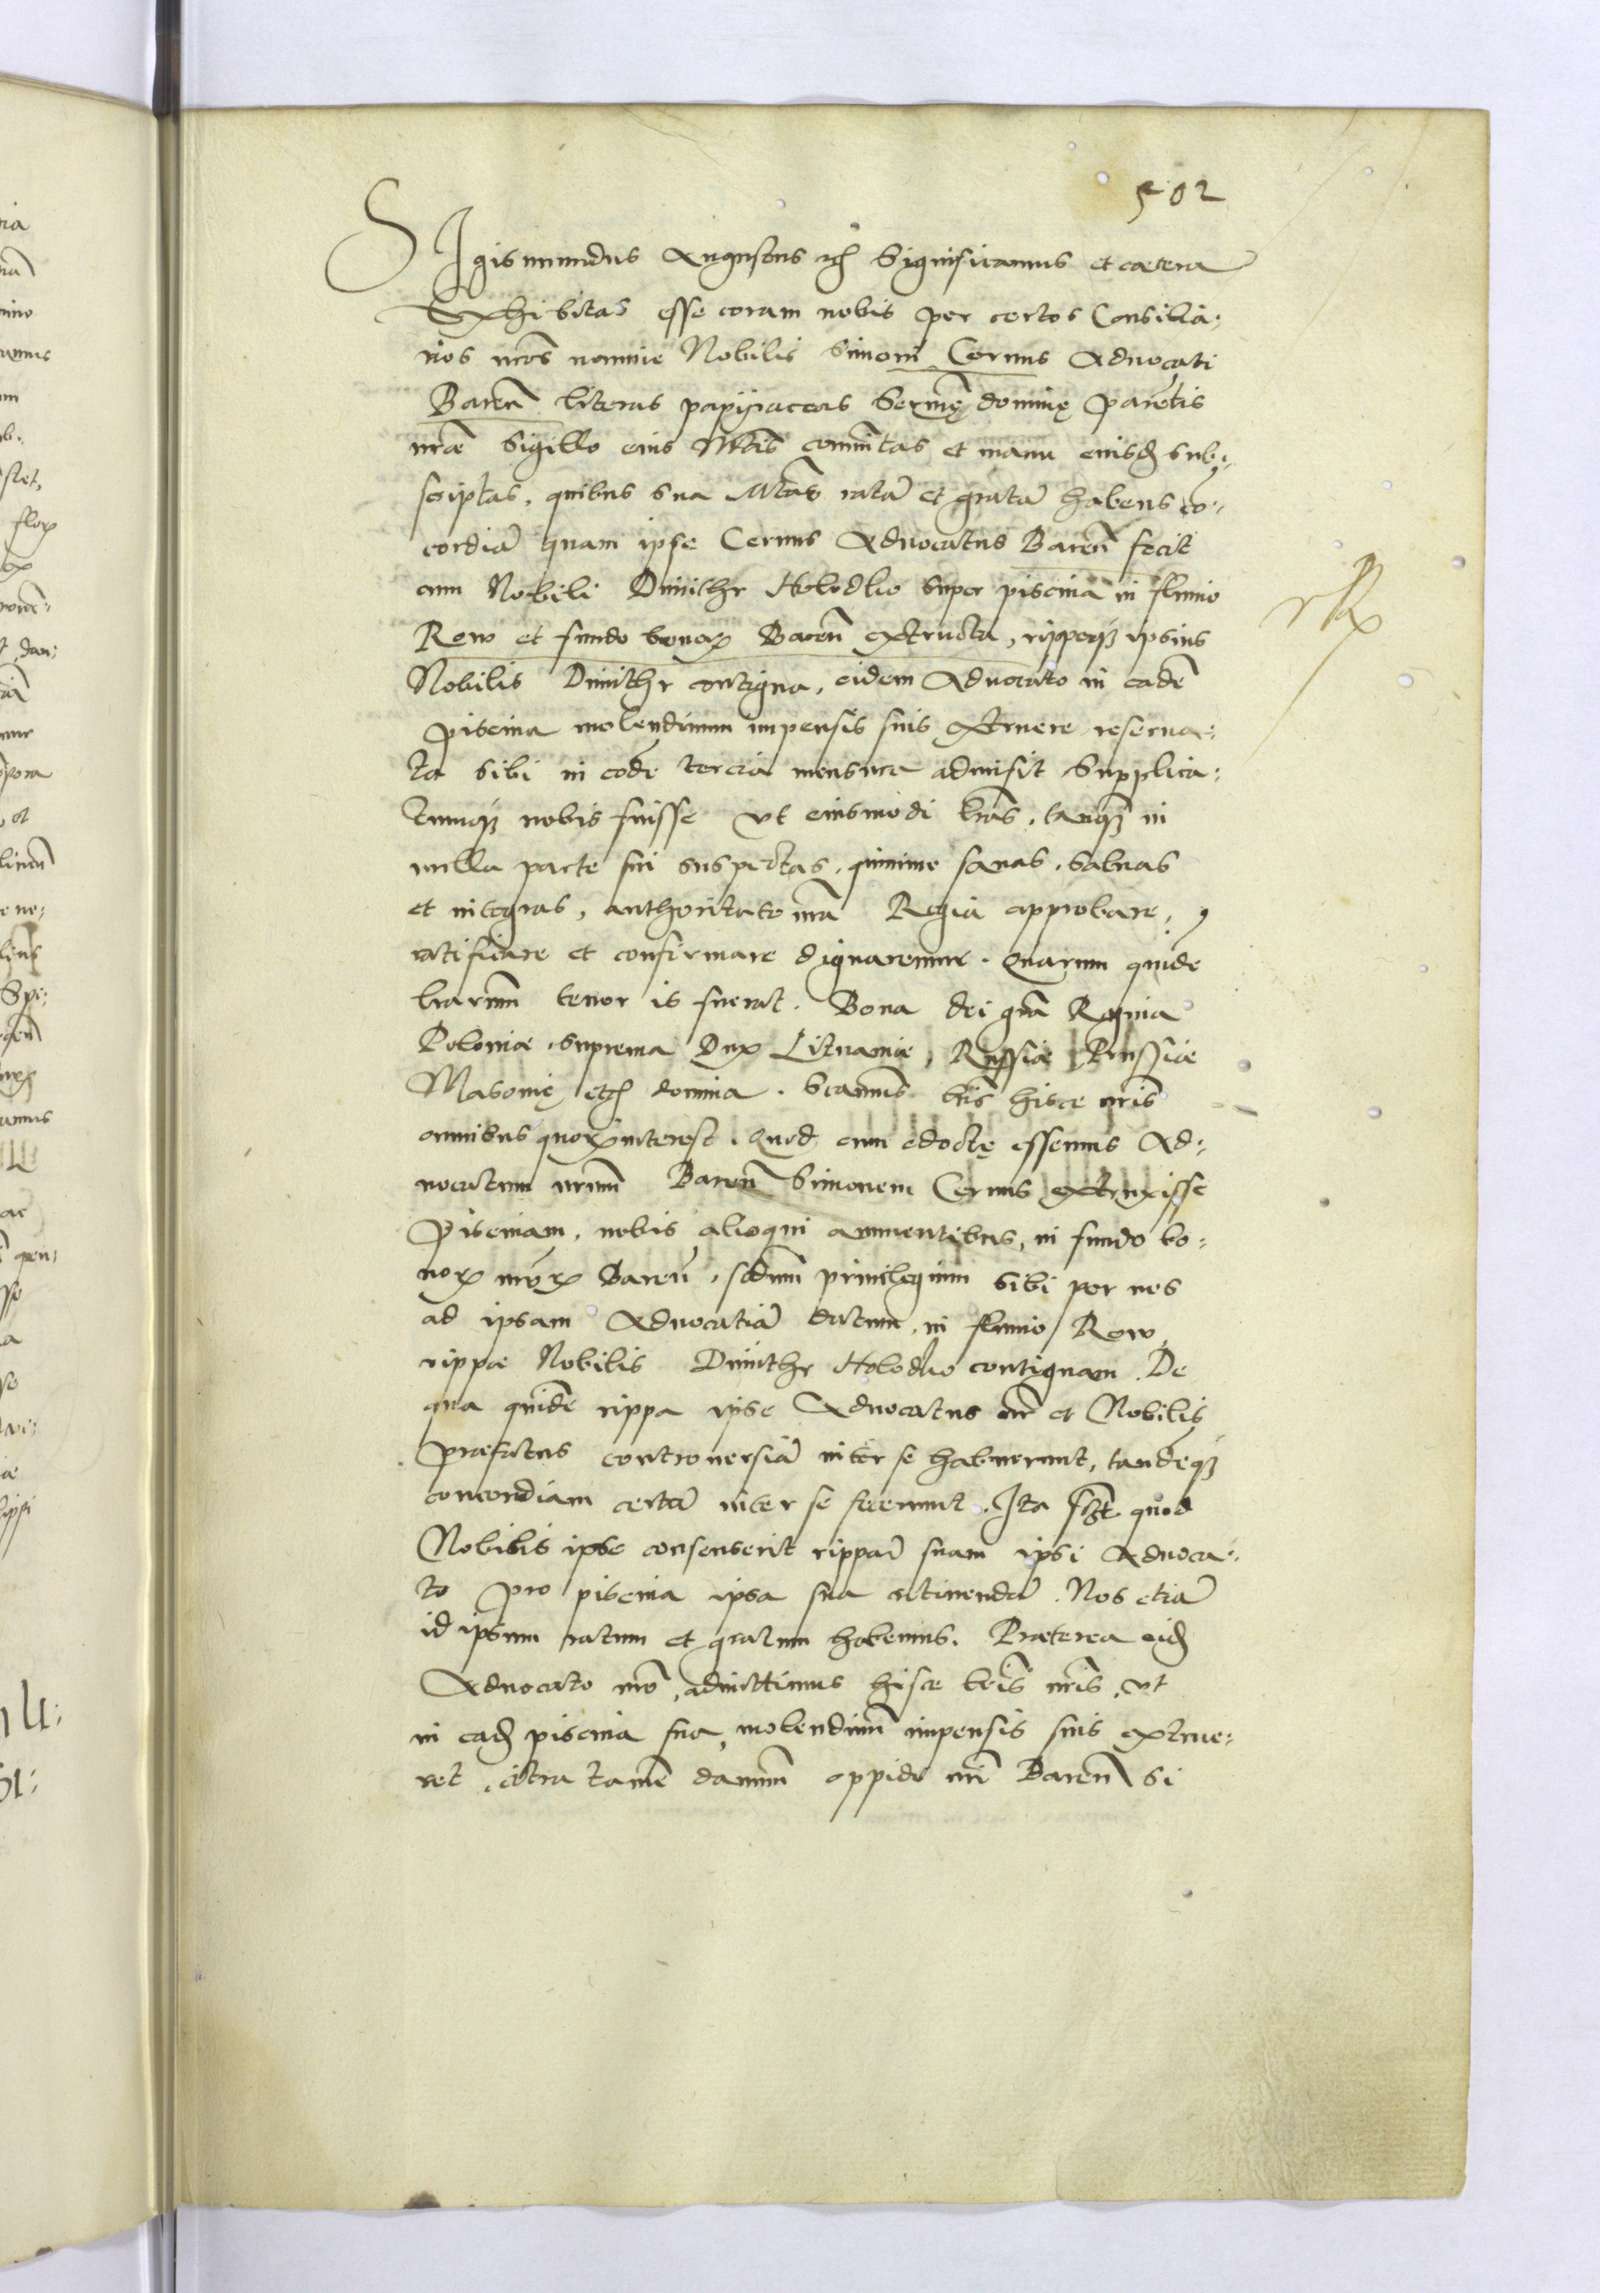 502
Sigismundus Augustus etc Significamus et caetera
Exhibitas esse coram nobis per certos Consilia:
rios nros nomine Nobilis Simonis Cernus Advocati
Baren literas papyraceas Sermę dominę Parentis
nrae Sigillo eius Mtis comunitas et manu eiusd sub:
scriptas, quibus sua Mtas ratã et gratã habens co:
cordiã quam ipse Cernus Advocatus Baren fecit
cum Nobili Dmithr Holodko super piscina in fluuio
Row et fundo bonorum Baren extructa, rippeque ipsius
Nobilis Dmithr contigua, eidem Aduocato in eadẽ
piscina molendinum impensis suis extruere reserua:
ta sibi in eodẽ tercia mensura admisit Supplica:
tumque nobis fuisse vt eiusmodi lras, tanque in
nulla parte sui suspectas, quinimo sanas, saluas
et integras, authoritate nra Regia approbare,
ratificare et confirmare dignaremur. Quarum quidẽ
lrarum tenor is fuerat. Bona dei gra Regina
Poloniae, Suprema Dux Lituaniae, Russiae Prussiae
Masouię etc domina. Significamus lris hisce nris
omnibus quorum interest. Quod cum edoctę essemus Ad:
uocatum nrum Baren Simonem Cernus extruxisse
Piscinam, nobis alioqui annuentibus, in fundo bo:
norum nrorum Baren, scdum priuilegium sibi per nos
ad ipsam Aduocatiã datum, in fluuio Row,
rippae Nobilis Dmithr Holodko contiguam. De
qua quidẽ rippa ipse Aduocatus nr et Nobilis
praefatus controuersiã inter se habuerunt, tandẽque
concordiam certã inter se fecerunt. Ita scilicet quod
Nobilis ipse consenserit rippam suam ipsi Aduoca:
to pro piscina ipsa sua attinendã. Nos etiã
id ipsum ratum et gratum habemus. Praeterea eid
Aduocato nro, admittimus hisce lris nris, vt
in ead piscina sua, molendinũ impensis suis extrue:
ret, citra tamẽ damnũ oppidi nri Baren si